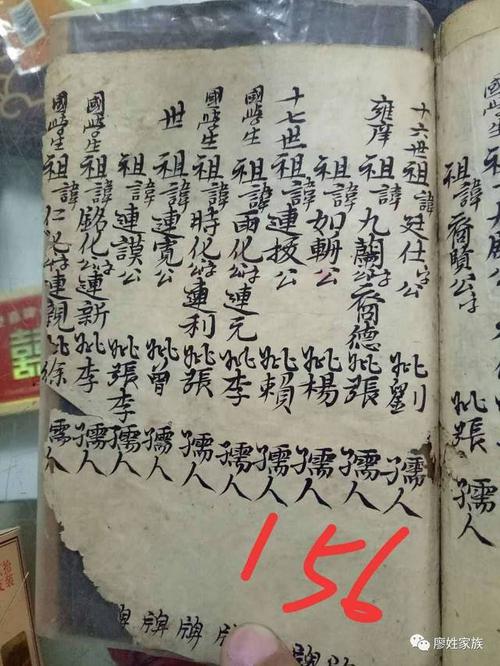 祖諱喬賢公字妣張孺人
十六世祖諱廷仕公妣劉孺人
雍庠祖諱九蘭字喬德妣張孺人
祖諱如輧公妣楊孺人
十七世祖諱連拔公妣賴孺人
國學生祖諱西化字連元妣李孺人
國學生祖諱時化字連利妣張孺人
世祖諱連寬公妣曾孺人
祖諱連謨公妣張李孺人
國學生祖諱銘化字連新妣李孺人
國學生祖諱仁化字連親妣徐孺人
牌牌牌牌牌牌
156
囍
廖姓家族